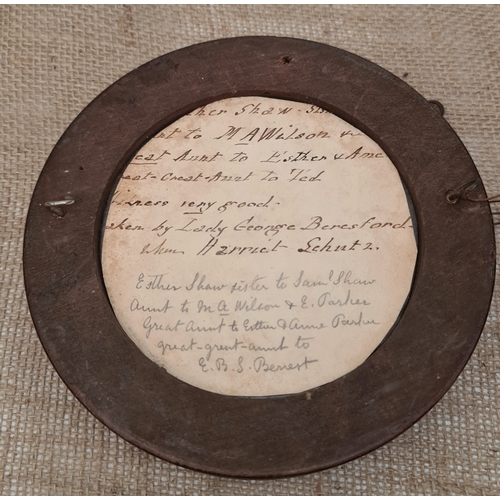 ther Shaw
to M A Wilson &
eat Aunt to Esther & Ann
eat-Great-Aunt to Ted
keness very good.
aken by Lady George Beresford
when Harriet Schutz.
Esther Shaw sister to Saml Shaw
Aunt to M A Wilson & E. Parker
Great Aunt to Esther & Anne Parker
great-great-aunt to
E. B. S. Benest